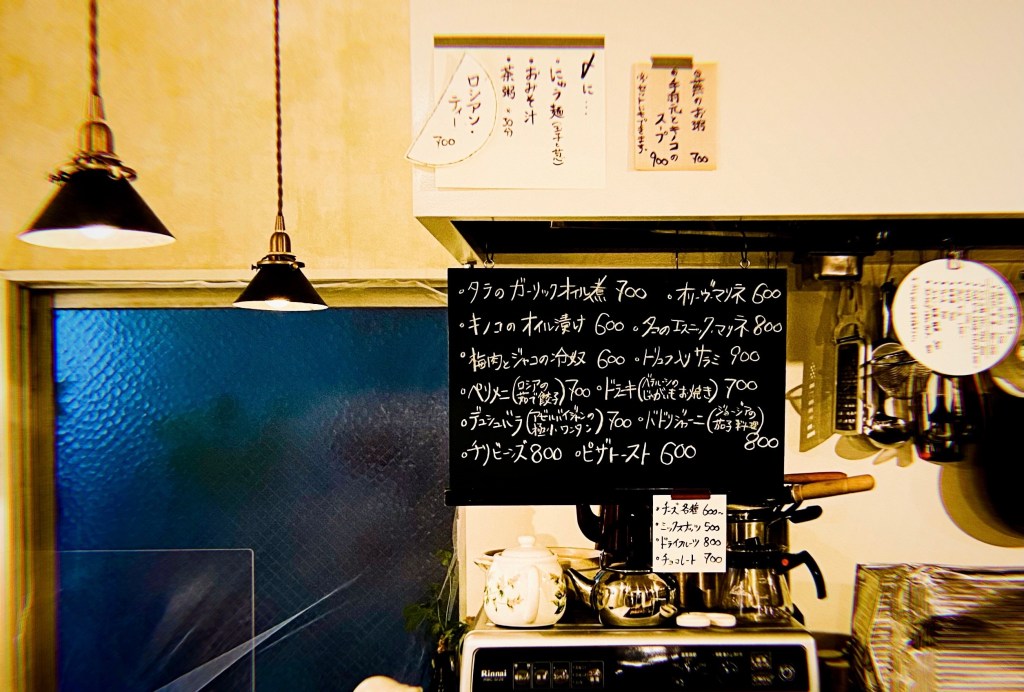 〆に…
・にゅう麺
・おみそ汁
・茶粥 30分
ロシアン・
ティー
700
お粥 700
手羽元とキノコの
スープ 900
・タラのガーリックオイル煮 700
・オリーヴマリネ 600
・キノコのオイル漬け 600
・タコのエスニックマリネ 800
・梅肉とジャコの冷奴 600
・トリュフ入りサラミ 900
・ペリメニ(ロシアのゆで餃子) 700
・ドラニキ(ベラルーシのじゃがいもお焼き) 700
・デュシュバラ(アゼルバイジャンの極小ワンタン) 700
・バドリジャーニ(ジョージアの茄子料理) 800
・チリビーンズ 800
・ピザトースト 600
・チーズ各種 600〜
・ミックスナッツ 500
・ドライフルーツ 800
・チョコレート 700
Rinnai